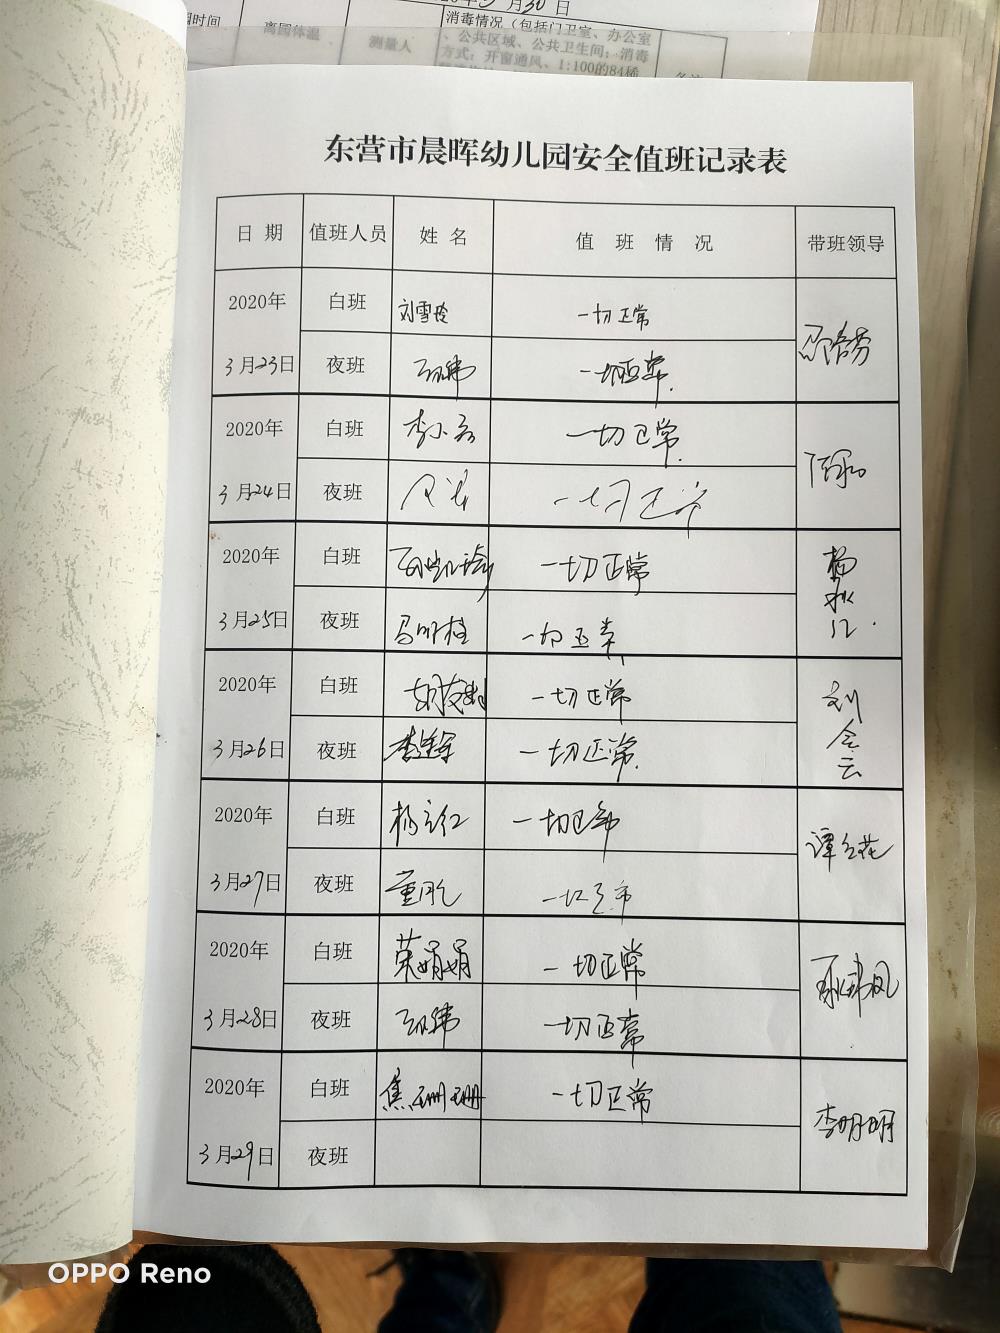 月30日
园时间
离园体温
测量人
消毒情况（包括门卫室、办公室
、公共区域、公共卫生间；消毒
方式：开窗通风、1:100的84稀
东营市晨晖幼儿园安全值班记录表
日 期 值班人员 姓 名 值 班 情 况 带班领导
2020年 白班 刘雪玲 一切正常
3月23日 夜班 一切正常.
2020年 白班 一切正常.
3月24日 夜班 一切正常
2020年 白班 一切正常
3月25日 夜班 马明柱 一切正常
2020年 白班 一切正常 刘会云
3月26日 夜班 一切正常.
2020年 白班 杨立红 一切正常 谭红花
3月27日 夜班 一切正常
2020年 白班 荣娟娟 一切正常
3月28日 夜班 一切正常
2020年 白班 焦珊珊 一切正常 李明明
3月29日 夜班
OPPO Reno